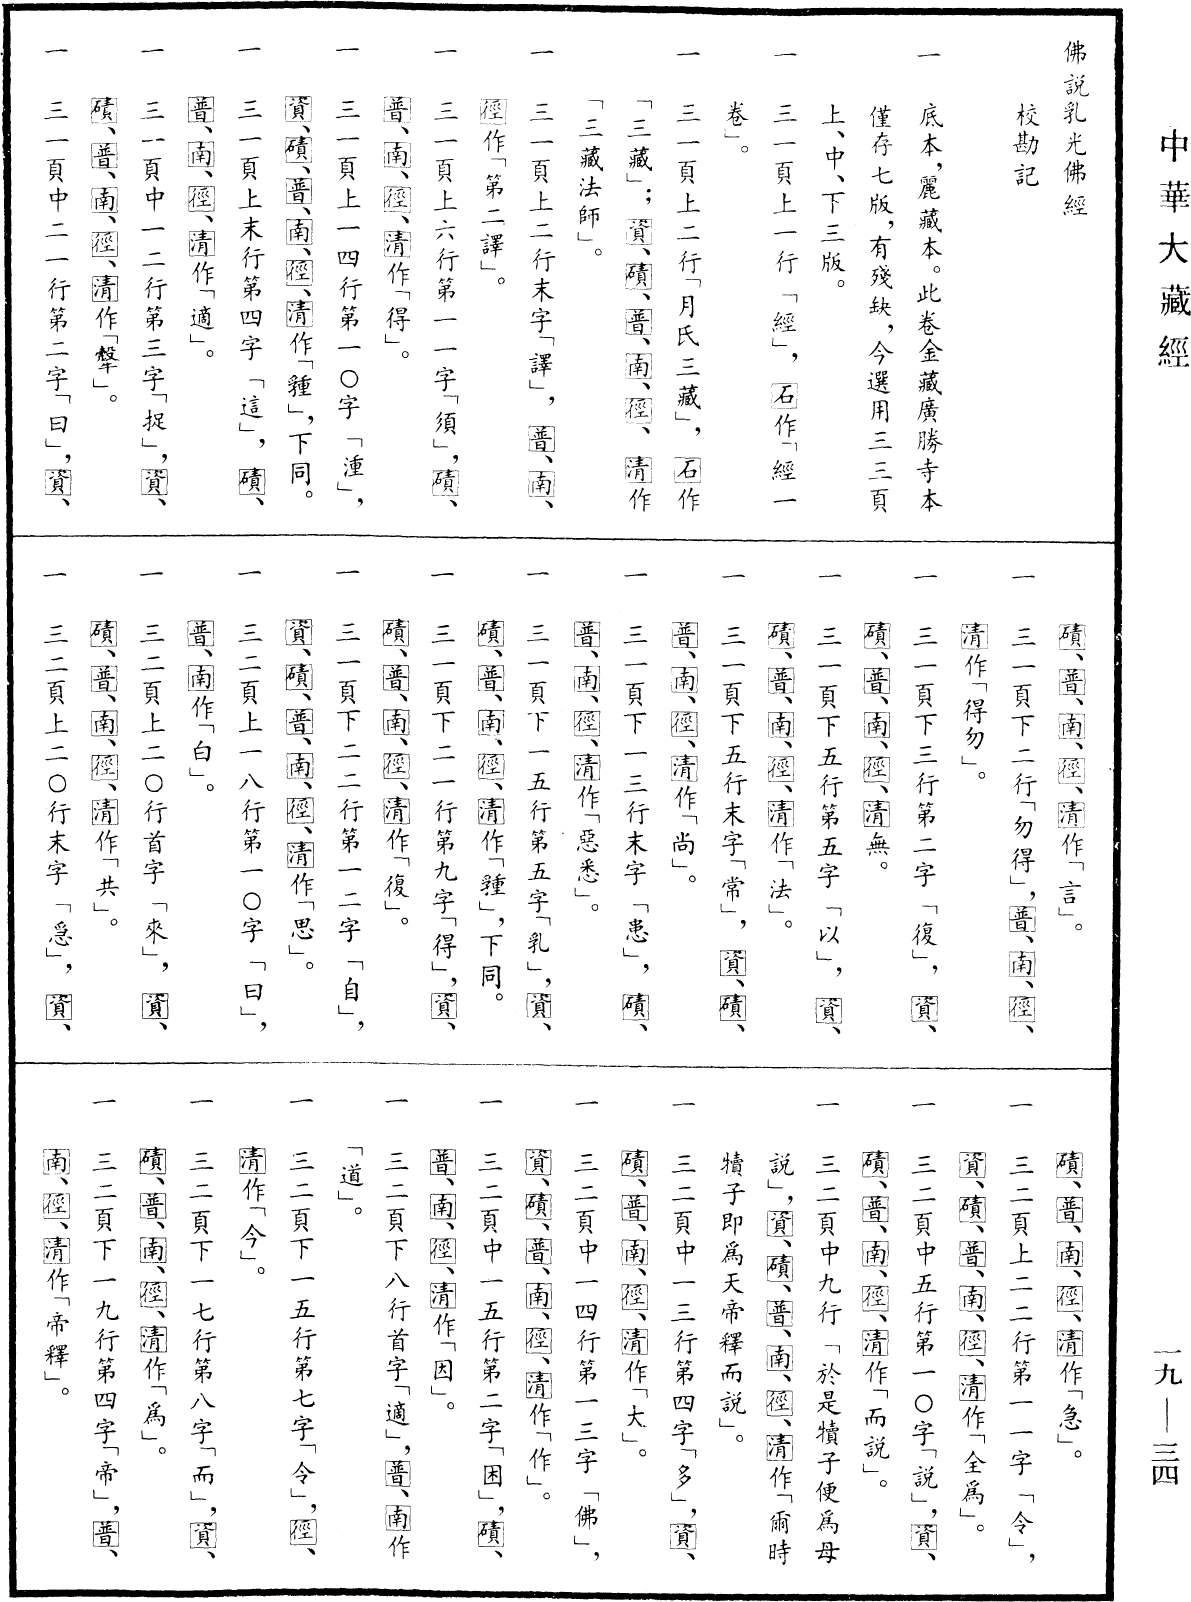 中華大藏經
佛說乳光佛經
校勘記
一 底本，麗藏本。此卷金藏廣勝寺本
僅存七版，有殘缺，今選用三三頁
上、中、下三版。
一 三一頁上一行「經」，石作「經一
卷」。
一 三一頁上二行「月氏三藏」，石作
「三藏」；資、磧、普、南、徑、清作
「三藏法師」。
一 三一頁上二行末字「譯」，普、南、
徑作「第二譯」。
一 三一頁上六行第一一字「須」，磧、
普、南、徑、清作「得」。
一 三一頁上一四行第一〇字「湩」，
資、磧、普、南、徑、清作「種」，下同。
一 三一頁上末行第四字「這」，磧、
普、南、徑、清作「適」。
一 三一頁中一二行第三字「捉」，資、
磧、普、南、徑、清作「㨍」。
一 三一頁中二一行第二字「曰」，資、
磧、普、南、徑、清作「言」。
一 三一頁下二行「勿得」，普、南、徑、
清作「得勿」。
一 三一頁下三行第二字「復」，資、
磧、普、南、徑、清無。
一 三一頁下五行第五字「以」，資、
磧、普、南、徑、清作「法」。
一 三一頁下五行末字「常」，資、磧、
普、南、徑、清作「尚」。
一 三一頁下一三行末字「恚」，磧、
普、南、徑、清作「惡悉」。
一 三一頁下一五行第五字「乳」，資、
磧、普、南、徑、清作「種」，下同。
一 三一頁下二一行第九字「得」，資、
磧、普、南、徑、清作「復」。
一 三一頁下二二行第一二字「自」，
資、磧、普、南、徑、清作「思」。
一 三二頁上一八行第一〇字「曰」，
普、南作「白」。
一 三二頁上二〇行首字「來」，資、
磧、普、南、徑、清作「共」。
一 三二頁上二〇行末字「爲」，資、
磧、普、南、徑、清作「急」。
一 三二頁上二二行第一一字「令」，
資、磧、普、南、徑、清作「全爲」。
一 三二頁中五行第一〇字「說」，資、
磧、普、南、徑、清作「而說」。
一 三二頁中九行「於是犢子便爲母
說」，資、磧、普、南、徑、清作「爾時
犢子即爲天帝釋而說」。
一 三二頁中一三行第四字「多」，資、
磧、普、南、徑、清作「大」。
一 三二頁中一四行第一三字「佛」，
資、磧、普、南、徑、清作「作」。
一 三二頁中一五行第二字「困」，磧、
普、南、徑、清作「因」。
一 三二頁下八行首字「適」，普、南作
「道」。
一 三二頁下一五行第七字「令」，徑、
清作「今」。
一 三二頁下一七行第八字「而」，資、
磧、普、南、徑、清作「爲」。
一 三二頁下一九行第四字「帝」，普、
南、徑、清作「帝釋」。
一九—三四